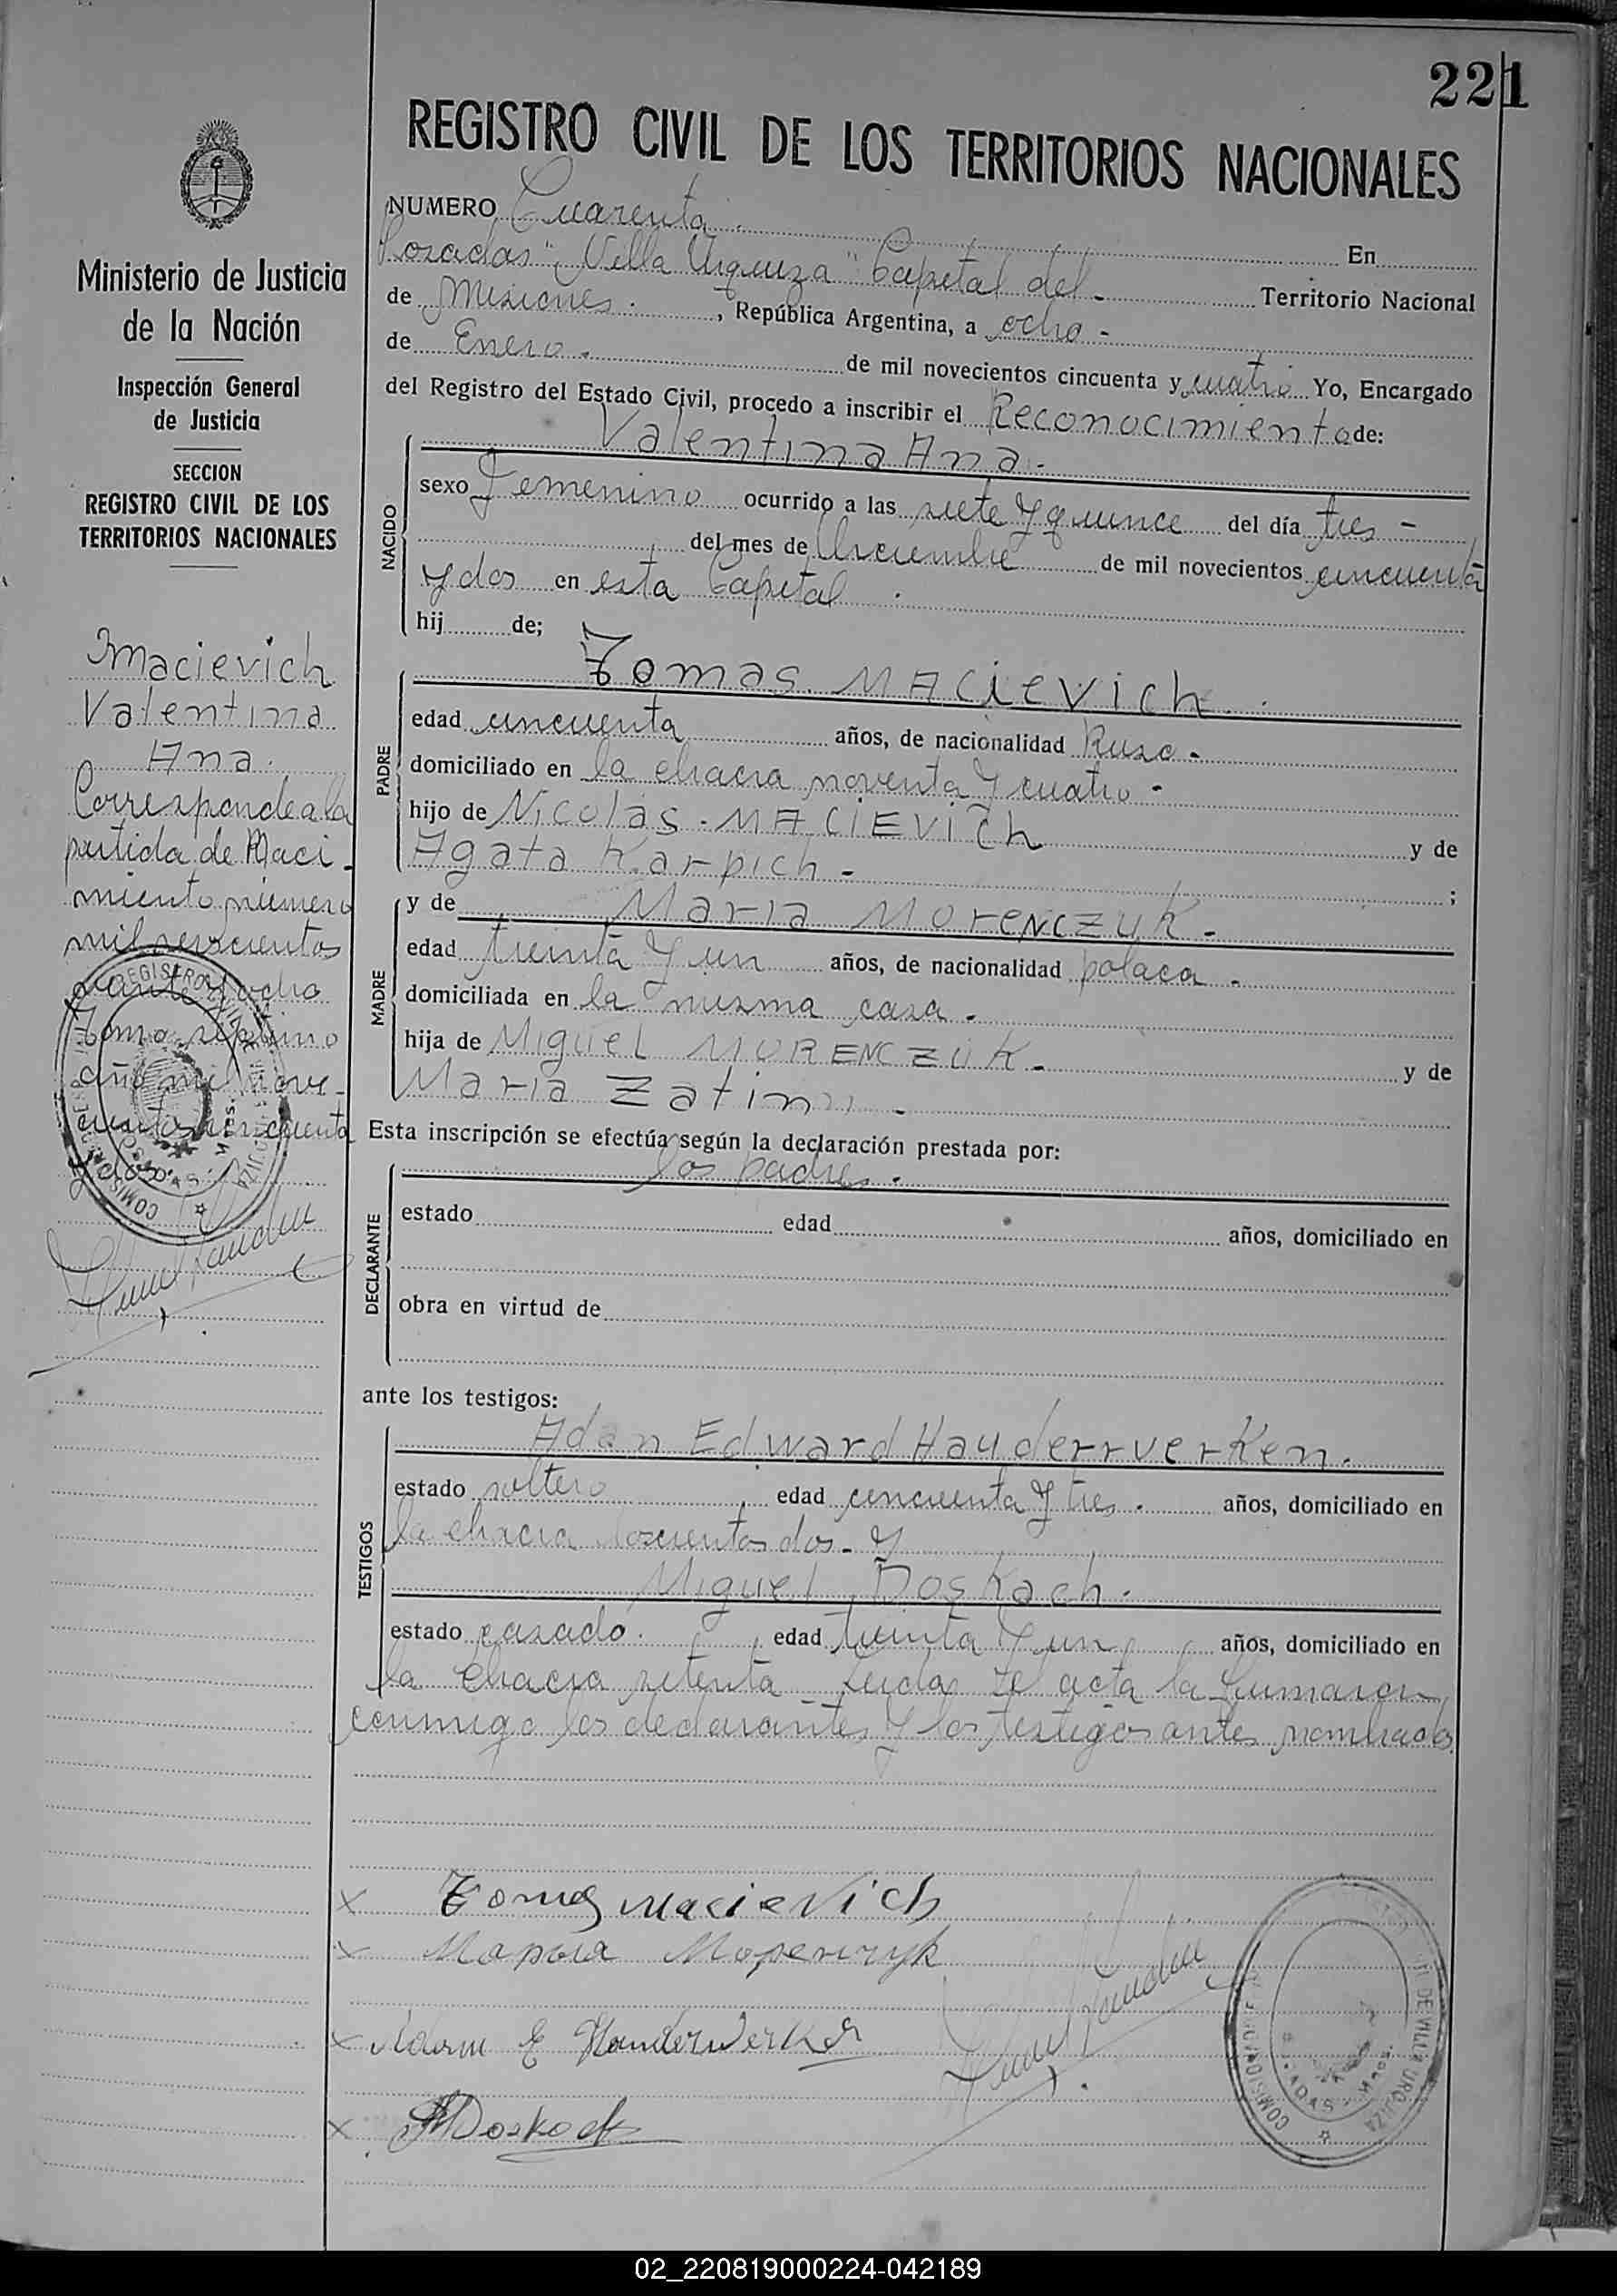 221
REGISTRO CIVIL DE LOS TERRITORIOS NACIONALES
Ministerio de Justicia
de la Nación
Inspección General
de Justicia
SECCION
REGISTRO CIVIL DE LOS
TERRITORIOS NACIONALES
Macievich
Valentina
Ana.
Corresponde a la
partida de Naci-
miento número
mil seiscientos
y ocho
tomo séptimo
año mil nove-
cientos cincuenta
y dos.
NUMERO Cuarenta. En
Posadas "Villa Urquiza" Capital del - Territorio Nacional
de Misiones. , República Argentina, a ocho -
de Enero. de mil novecientos cincuenta y cuatro Yo, Encargado
del Registro del Estado Civil, procedo a inscribir el Reconocimiento de:
Valentina Ana.-
NACIDO
sexo Femenino ocurrido a las siete y quince del día tres -
del mes de Diciembre de mil novecientos cincuenta
y dos en esta Capital.
hij de;
Tomas MACievich.
PADRE
edad cincuenta años, de nacionalidad Ruso-
domiciliado en la chacra noventa y cuatro-
hijo de Nicolás.MACIEVICh y de
Agata Karpich- ;
y de Maria MorENCZUK-
MADRE
edad treinta y un años, de nacionalidad polaca-
domiciliada en la misma casa-
hija de Miguel MORENCZUK- y de
Maria
Esta inscripción se efectúa según la declaración prestada por:
los padres.
DECLARANTE
estado edad años, domiciliado en
obra en virtud de
ante los testigos:
Adan Edward Hayderrverken.
TESTIGOS
estado soltero edad cincuenta y tres. años, domiciliado en
la chacra doscientos dos- y
Miguel Doskach.
estado casado. edad treinta y un años, domiciliado en
la chacra setenta - Leida el acta la firmaron
conmigo los declarantes y los testigos antes nombrados
x Tomas Macievich
x Моренчук
x Adam E Handerwerker
x Doskach
COMISION REGISTRO CIVIL DE VILLA URQUIZA
POSADAS - Mnes.
02_220819000224-042189